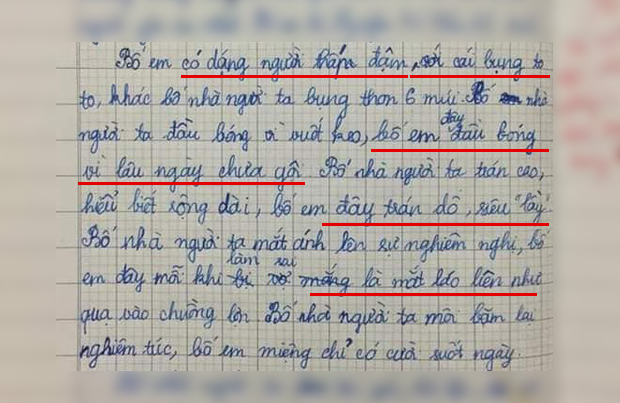 Bố em có dáng người thấp đậm, với cái bụng to
to, khác bố nhà người ta bụng thon 6 múi. Bố nhà
người ta đầu bóng vì vuốt keo, bố em đây đầu bóng
vì lâu ngày chưa gội. Bố nhà người ta trán cao,
hiểu biết rộng dài, bố em đây trán dô, siêu "lầy".
Bố nhà người ta mắt ánh lên sự nghiêm nghị, bố
em đây mỗi khi làm sai là mắt láo liên như
quạ vào chuồng lợn. Bố nhà người ta môi bặm lại
nghiêm túc, bố em miệng chỉ có cười suốt ngày.